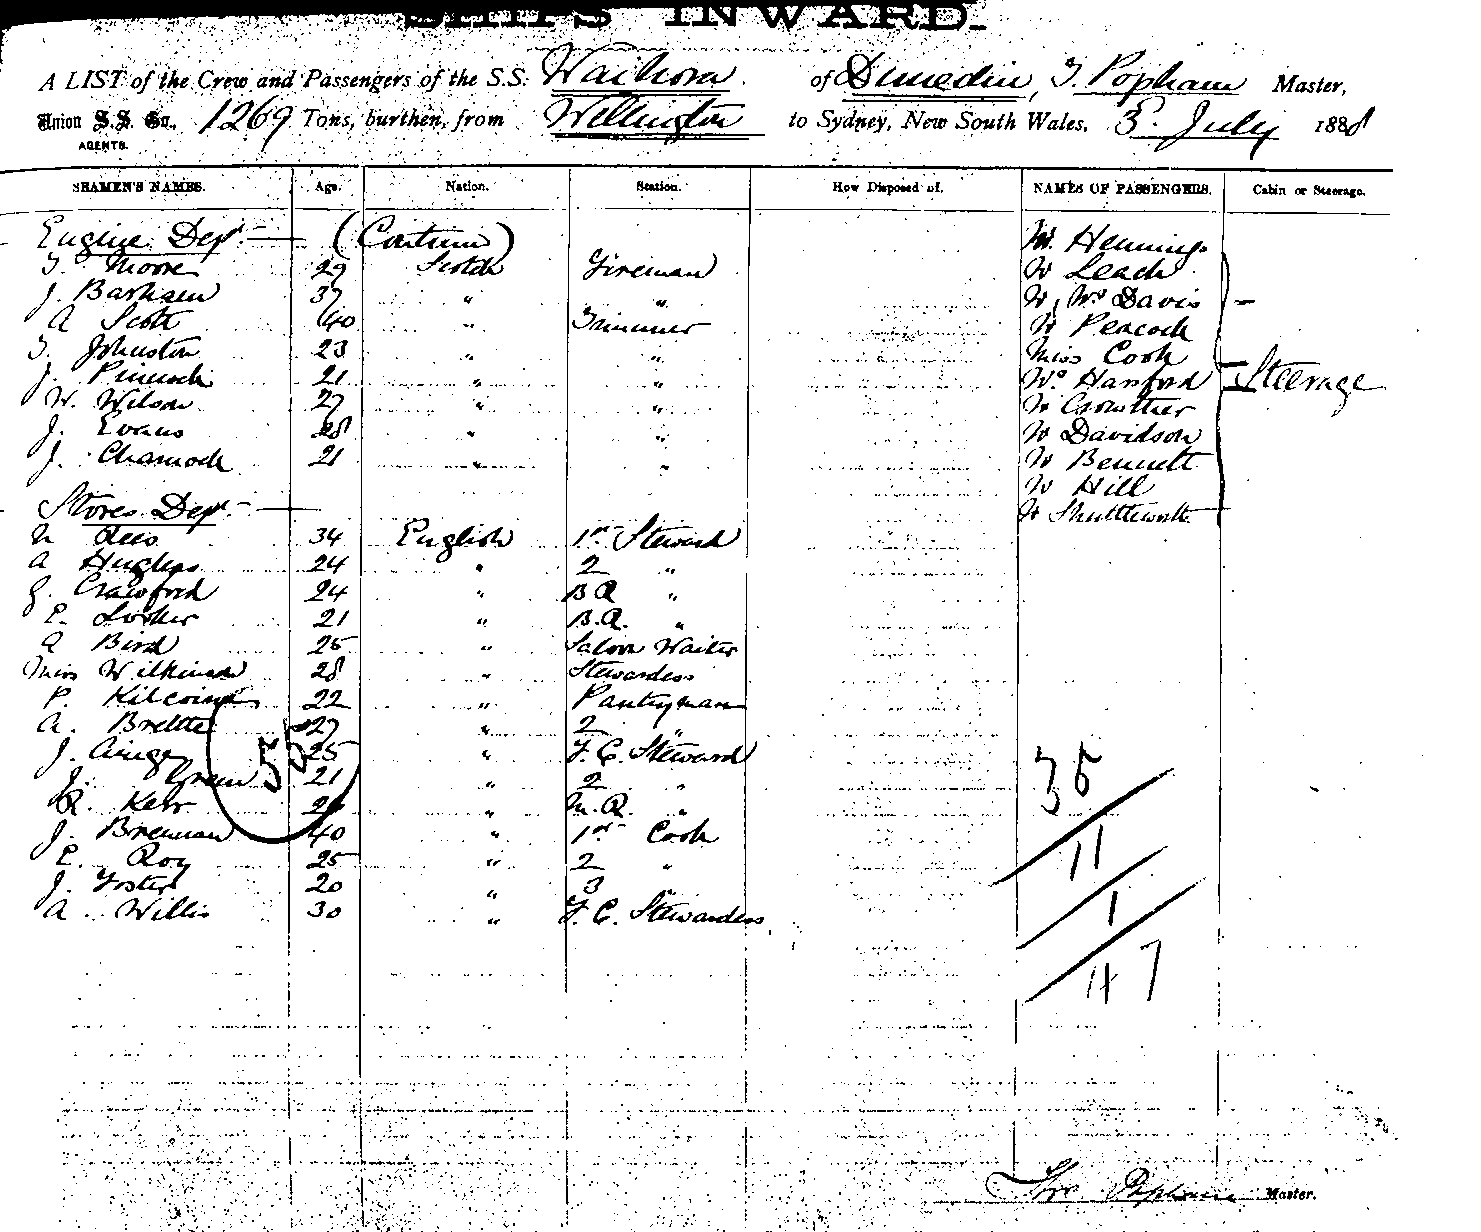 SHIPS INWARD.
A LIST of the Crew and Passengers of the S.S. Waihora of Dunedin, T. Popham Master,
Union S.S. Co., 1269 Tons, burthen, from Wellington to Sydney, New South Wales, 3. July 1888
AGENTS.
SEAMEN'S NAMES. Age. Nation. Station. How Disposed of. NAMES OF PASSENGERS. Cabin or Steerage.
Engine Dept. (Continu) Mr. Hennings
T. Moore 29 Scotch Fireman Mr Leach
J. 37 " " Mr, Mrs Davis
A Scott 40 " Trimmer Mr Peacock
T. Johnston 23 " " Miss Cook
J. Pinnock 21 " " Mrs Hanford Steerage
W. Wilson 27 " " Mr Crowther
J. Evans 28 " " Mr Davidson
J. Charnock 21 " " Mr Bennett
Mr Hill
Stores Dept. Mr Shuttleworth
34 English 1st Steward
A Hughes 24 " 2 "
G. Crawford 24 " B R "
E. 21 " B.R. "
A Bird 25 " Saloon Waiter
Miss Wilkinson 28 " Stewardess
P. Kilcoine 22 " Pantryman
A. Brette 27 " 2 "
J. 25 " F. C. Steward
J. Green 21 " 2 "
R. Kerr " M. R. "
J. Brennan 40 " 1st Cook
E. Roy 25 " 2 "
J. Foster 20 " 3 "
A. Willis 30 " F. C. Stewardess
55
35
11
1
47
Thos Popham Master.